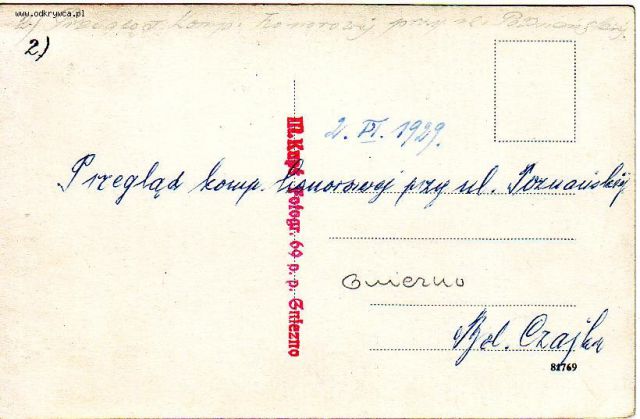 www.odkrywca.pl
2) Przegląd komp. honorowej przy ul. Poznańskiej
2)
2. VI. 1929.
Przegląd komp. honorowej przy ul. Poznańskiej
Gniezno
Bol. Czajka
81769
Fotogr. 69 p. p. Gniezno